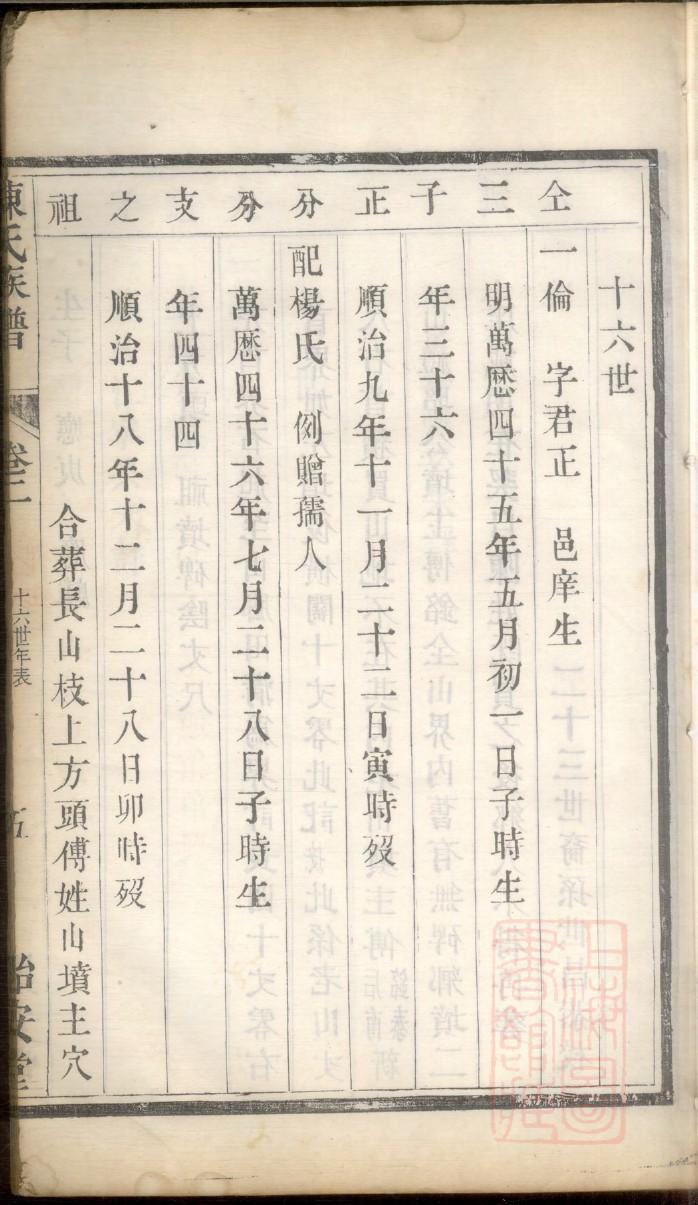 仝三子正分分支之祖
十六世
一倫 字君正 邑庠生
明萬歷四十五年五月初一日子時生
年三十六
順治九年十一月二十二日寅時歿
配楊氏 例贈孺人
萬歷四十六年七月二十八日子時生
年四十四
順治十八年十二月二十八日卯時歿
合葬長山枝上方頭傅姓山墳主穴
陳氏族譜 卷二 十六世年表 五 怡安堂